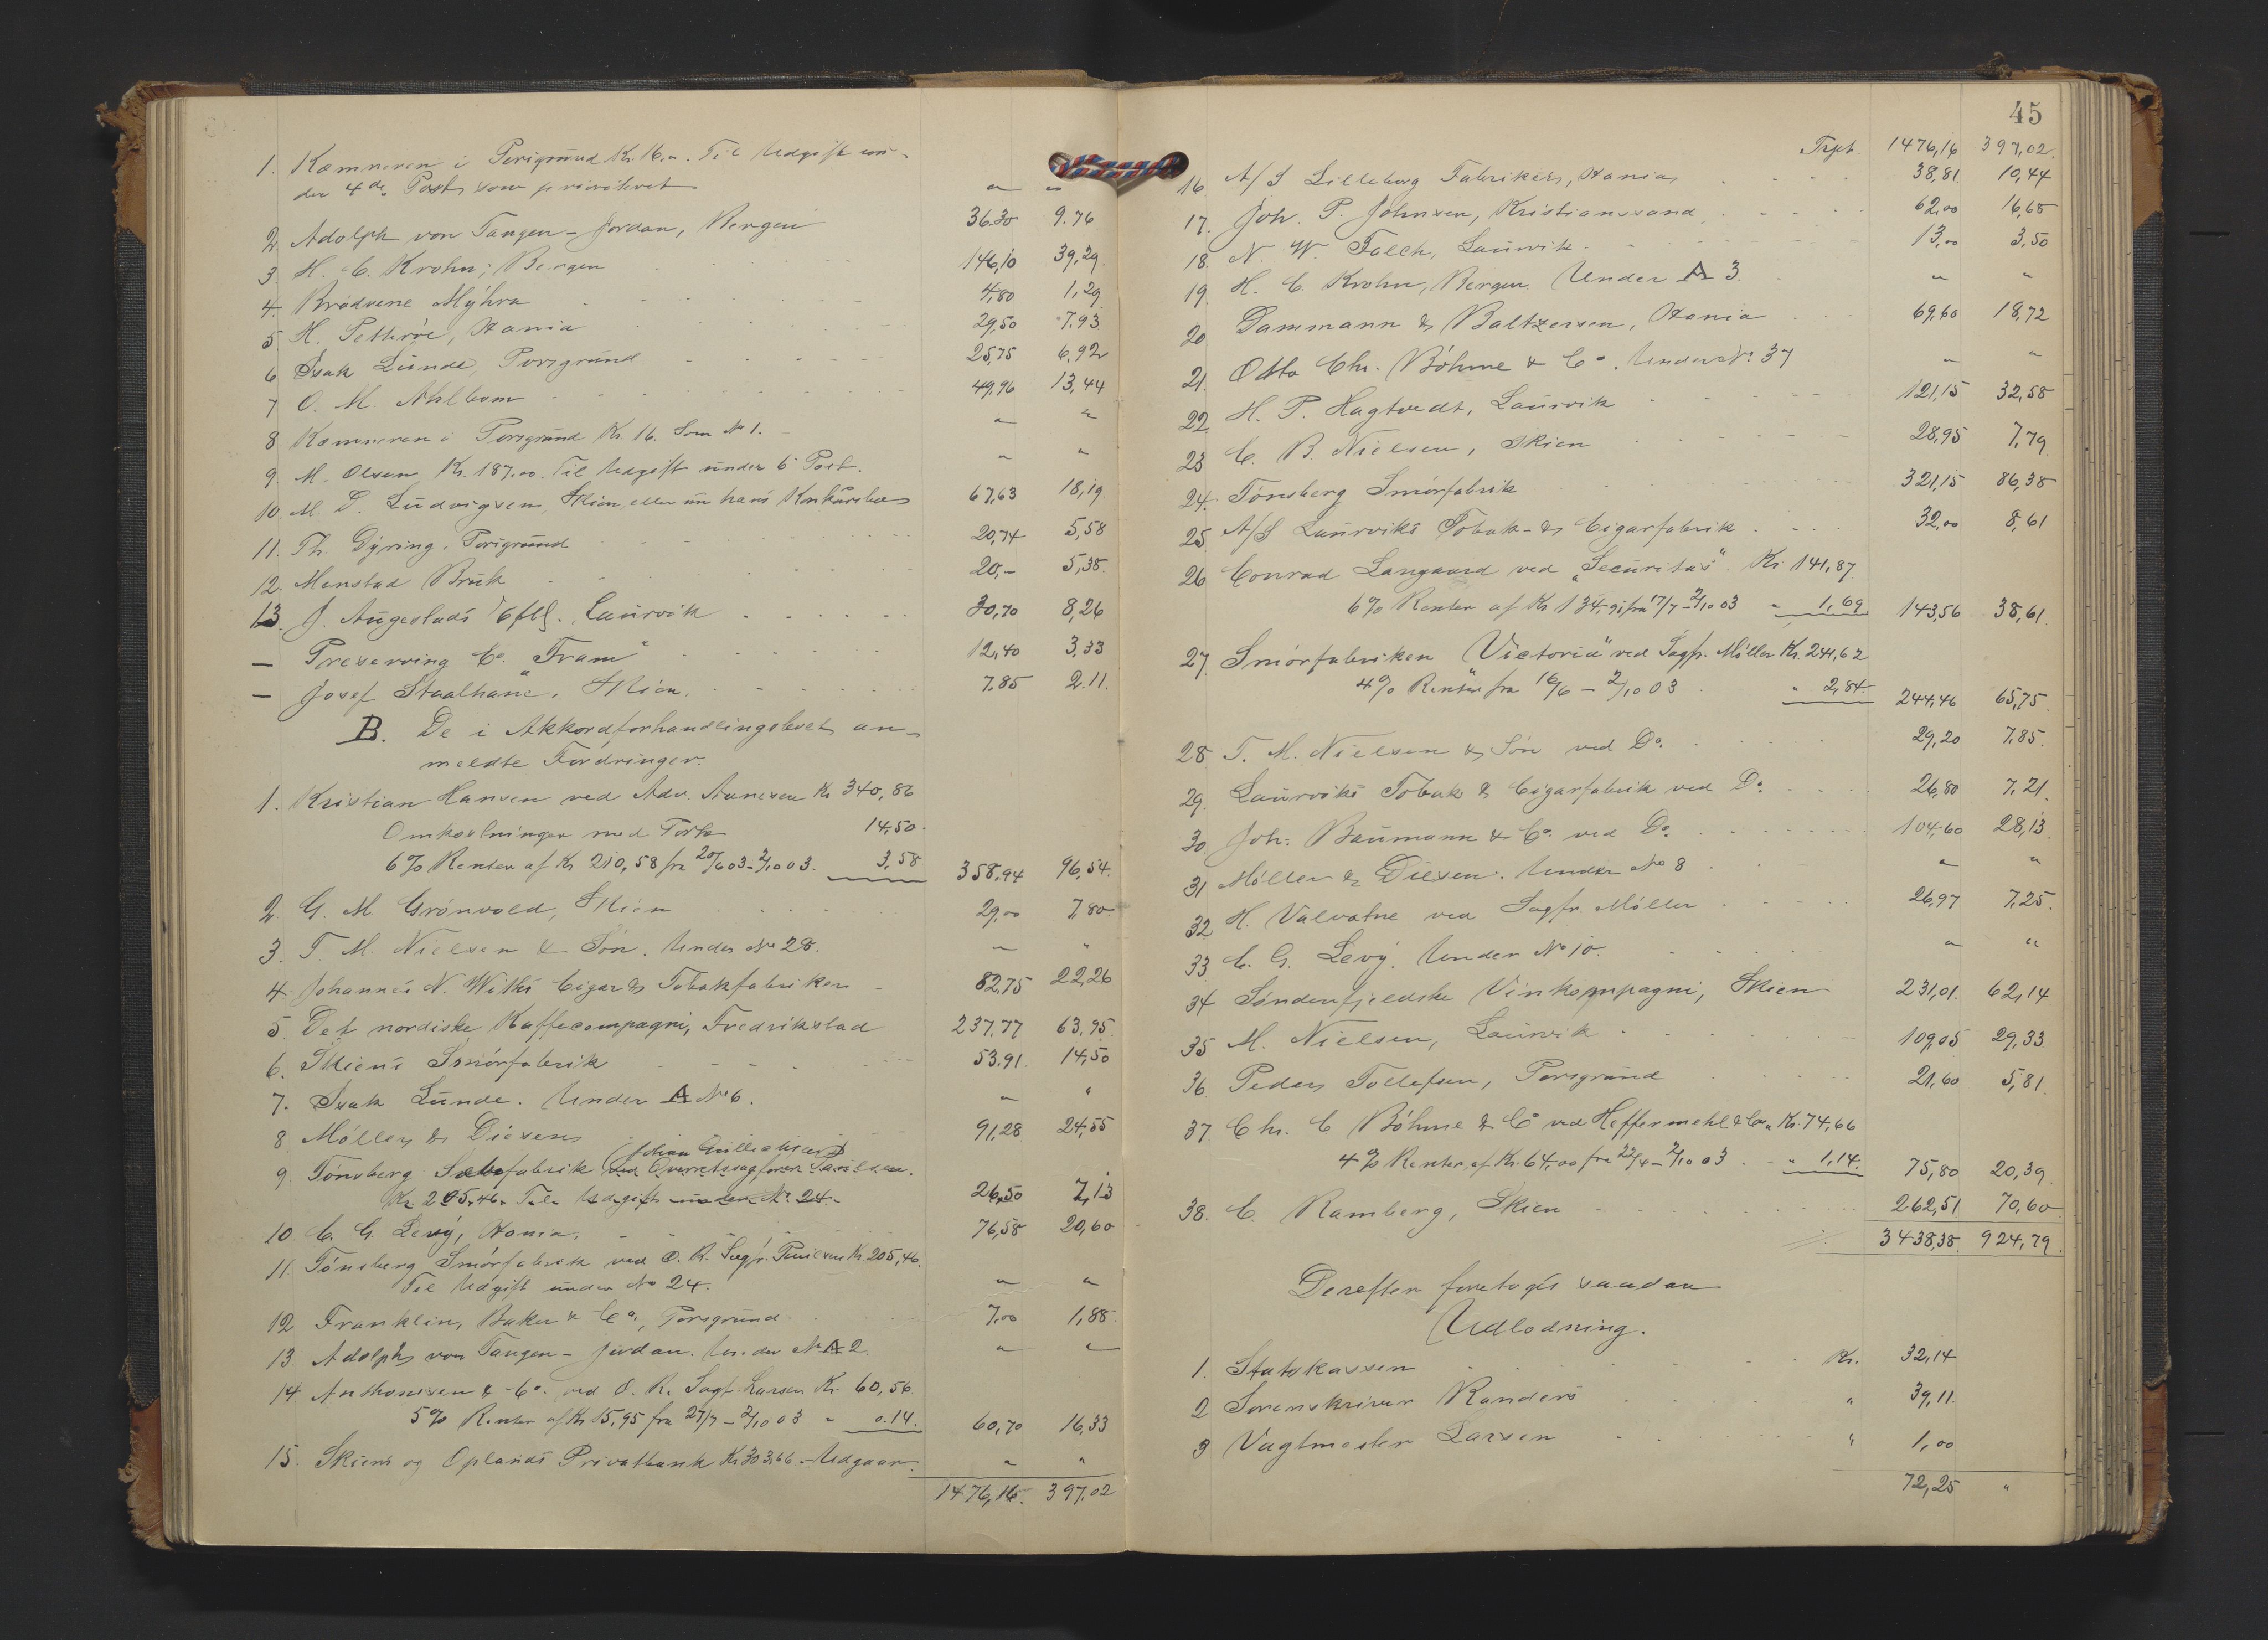 1. Kæmneren i Porsgrund Kr. 16,„. Til Udgift un-
der 4de Post som privilivert „ „
2. Adolph von Tangen - Jordan, Bergen 36.30 9.76
3. H. C. Krohn, Bergen 146,10 39,29.
4. Brødrene Myhra 4,80 1,29
5. H. Petterøe, Xania 29,50 7,93
6 Isak Lunde, Porsgrund 25,75 6,92
7 O. M. Ahlbom 49,96 13,44
8. Kæmneren i Porsgrund Kr. 16. Som No 1. „ „
9. M. Olsen Kr. 187,00. Til Udgift under 6 Post. „ „
10. M. D. Ludvigsen, Skien eller nu hans Konkursbo 67,63 18,19
11. Th. Gyring, Porsgrund 20,74 5,58
12. Menstad Bruk 20,- 5,38.
13. J. Augestads Eftf., Laurvik 30,70 8,26
— Preserving Co. "Fram" 12,40 3,33
— Josef Staalhane, Skien. 7,85 2.11.
B. De i Akkordforhandlingsboet an-
meldte Fordringer.
1. Kristian Hansen ved Adv. Aanesen Kr 340,86
Omkostninger med Forlig 14,50.
6% Renter af Kr 210,58 fra 20/6 03 - 2/10 03. 3,58 358,94 96,54.
2. G. M. Grönvold, Skien 29,00 7,80.
3. T. M. Nielsen & Sön. Under No 28. „ „
4. Johannes N. Wiels Cigar & Tobakfabriker 82,75 22,26
5. Det nordiske Kaffecompagni, Fredrikstad 237,77 63,95.
6. Skiens Smörfabrik 53.91. 14,50
7. Isak Lunde. Under A No 6. „ „
8 Möller & Diesen 91,28 24,55
9. Tönsberg Sæbefabrik (Johan Gullichsen)
ved Overretssagförer Paulsen.
Kr 205.46. Til Udgift under No 24. 26,50 7,13
10 C. G. Levy, Xania. 76,58 20,60
11. Tönsberg Smörfabrik ved O. R. Sagf. Paulsen Kr 205,46.
Til Udgift under No 24. „ „
12 Franklin, Baker & Co., Porsgrund 7,00 1,88.
13. Adolph von Tangen - Jordan. Under No A 2 „ „
14 Anthonisen & Co. ved O. R. Sagf. Larsen Kr. 60,56.
5% Renter af Kr 15,95 fra 27/7 - 2/10 03 „ 0.14. 60,70 16,33
15. Skiens og Oplands Privatbank Kr 303,66 - Udgaar. „ „
1476,16. 397.02
45
Trpt. 1476,16 397,02.
16. A/S Lilleborg Fabriker, Xania 38,81 10,44
17. Joh. P. Johnsen, Kristianssand 62,00 16,68
18. N. W. Falch, Laurvik 13,00 3,50
19. H. C. Krohn, Bergen. Under A 3. „ „
20. Dammann & Baltzersen, Xania 69,60 18,72
21. Otto Chr. Böhme & Co. Under No. 37 „ „
22. H. P. Hagtvedt, Laurvik 121,15 32,58
23 C. B. Nielsen, Skien 28,95 7,79
24. Tönsberg Smörfabrik 321,15 86,38
25. A/S Laurviks Tobak- & Cigarfabrik 32,00 8,61
26 Conrad Langaard ved „Securitas". Kr. 141,87
6% Renter af Kr 134,91 fra 17/7 - 2/10 03 „ 1,69 143,56 38,61.
27. Smörfabriken "Victoria" ved Sagf. Möller Kr. 241,62
4% Renter fra 16/6 - 2/10 03 „ 2,84. 244,46 65,75.
28 T. M. Nielsen & Sön ved Do. 29,20 7,85.
29. Laurviks Tobak & Cigarfabrik ved Do. 26,80 7,21.
30 Joh. Baumann & Co. ved Do. 104,60 28,13.
31 Möller & Diesen. Under No 8 „ „
32 H. Valvatne ved Sagfr. Möller 26,97 7,25.
33 C. G. Levy. Under No 10. „ „
34 Söndenfjeldske Vinkompagni, Skien 231,01. 62,14
35 M. Nielsen, Laurvik 109,05 29,33
36 Peder Tollefsen, Porsgrund 21,60 5,81.
37. Chr. C Böhme & Co ved Heffermehl & Co. Kr. 74,66
4% Renter af Kr. 64,00 fra 22/4 - 2/10 03 „ 1,14. 75,80 20,39.
38. C. Ramberg, Skien 262,51 70,60
3438,38. 924,79.
Derefter foretoges saadan
Udlodning.
1. Statskassen Kr. 32,14
2 Sorenskriver Randers „ 39,11.
3 Vagtmester Larsen „ 1,00
72,25 „